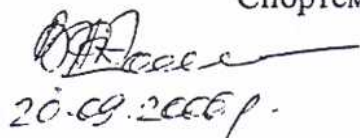 Спортем
20.09.2006г.